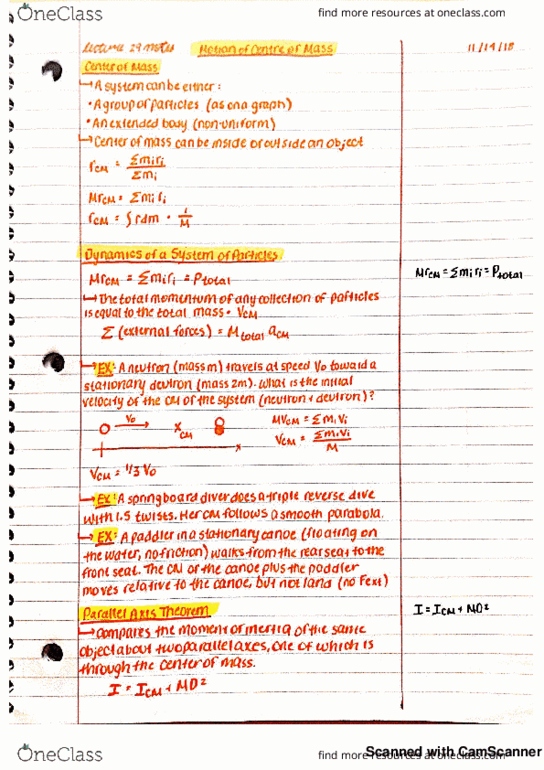 OneClass
find more resources at oneclass.com
Lecture 29 notes Motion of Centre of Mass 11/19/18
Center of Mass
↳ A system can be either:
• A group of particles (as on a graph)
• An extended body (non-uniform)
↳ Center of mass can be inside or outside an object
r_CM = Σm_i r_i / Σm_i
Mr_CM = Σm_i r_i
r_CM = ∫rdm · 1/M
Dynamics of a System of Particles
Mr_CM = Σm_i r_i = P_total
Mr_CM = Σm_i r_i = P_total
↳ The total momentum of any collection of particles
is equal to the total mass • V_CM
Σ (external forces) = M_total a_CM
↳ EX: A neutron (mass m) travels at speed V_0 toward a
stationary deutron (mass 2m). What is the initial
velocity of the CM of the system (neutron + deutron)?
V_0 → X_CM x
MV_CM = Σm_i V_i
V_CM = Σm_i V_i / M
V_CM = 1/3 V_0
↳ EX: A springboard diver does a triple reverse dive
with 1.5 twists. Her CM follows a smooth parabola.
↳ EX: A paddler in a stationary canoe (floating on
the water, no friction) walks from the rear seat to the
front seat. The CM of the canoe plus the paddler
moves relative to the canoe, but not land (no Fext)
Parallel Axis Theorem
I = I_CM + MD²
↳ compares the moment of inertia of the same
object about two parallel axes, one of which is
through the center of mass.
I = I_CM + MD²
OneClass
find more resources at oneclass.com
Scanned with CamScanner